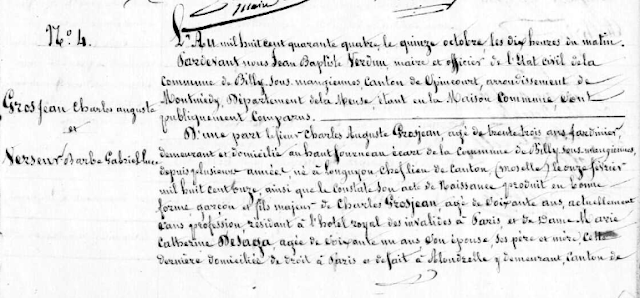 Maire
N.º 4.
Grosjean Charles auguste
et
Verseux Barbe Gabrielle
L'An mil huit cent quarante quatre, le quinze octobre les dix heures du matin.
Pardevant nous Jean Baptiste Verdun, maire et officier de l'état civil de la
Commune de Billy sous mangiennes, Canton de Spincourt, arrondissement de
Montmédy, Département de la Meuse, étant en la Maison Commune sont
publiquement Comparus.
D'une part le sieur Charles Auguste Grosjean, agé de trente trois ans Jardinier,
demeurant et domicilié au haut fourneau écart de la Commune de Billy sous mangiennes,
depuis plusieurs années, né à Longuyon Chef lieu de Canton, (Moselle) le onze février
mil huit cent onze, ainsi que le Constate son acte de Naissance produit en bonne
forme, garçon et fils majeur de Charles Grosjean, agé de Soixante ans, actuellement
sans profession, résidant à l'hotel royal des invalides à Paris, et de Dame Marie
Catherine Desaga, agée de Soixante un ans Son épouse, ses père et mère, Cette
dernière domiciliée de droit à Paris et de fait à Mondrelle y demeurant, Canton de